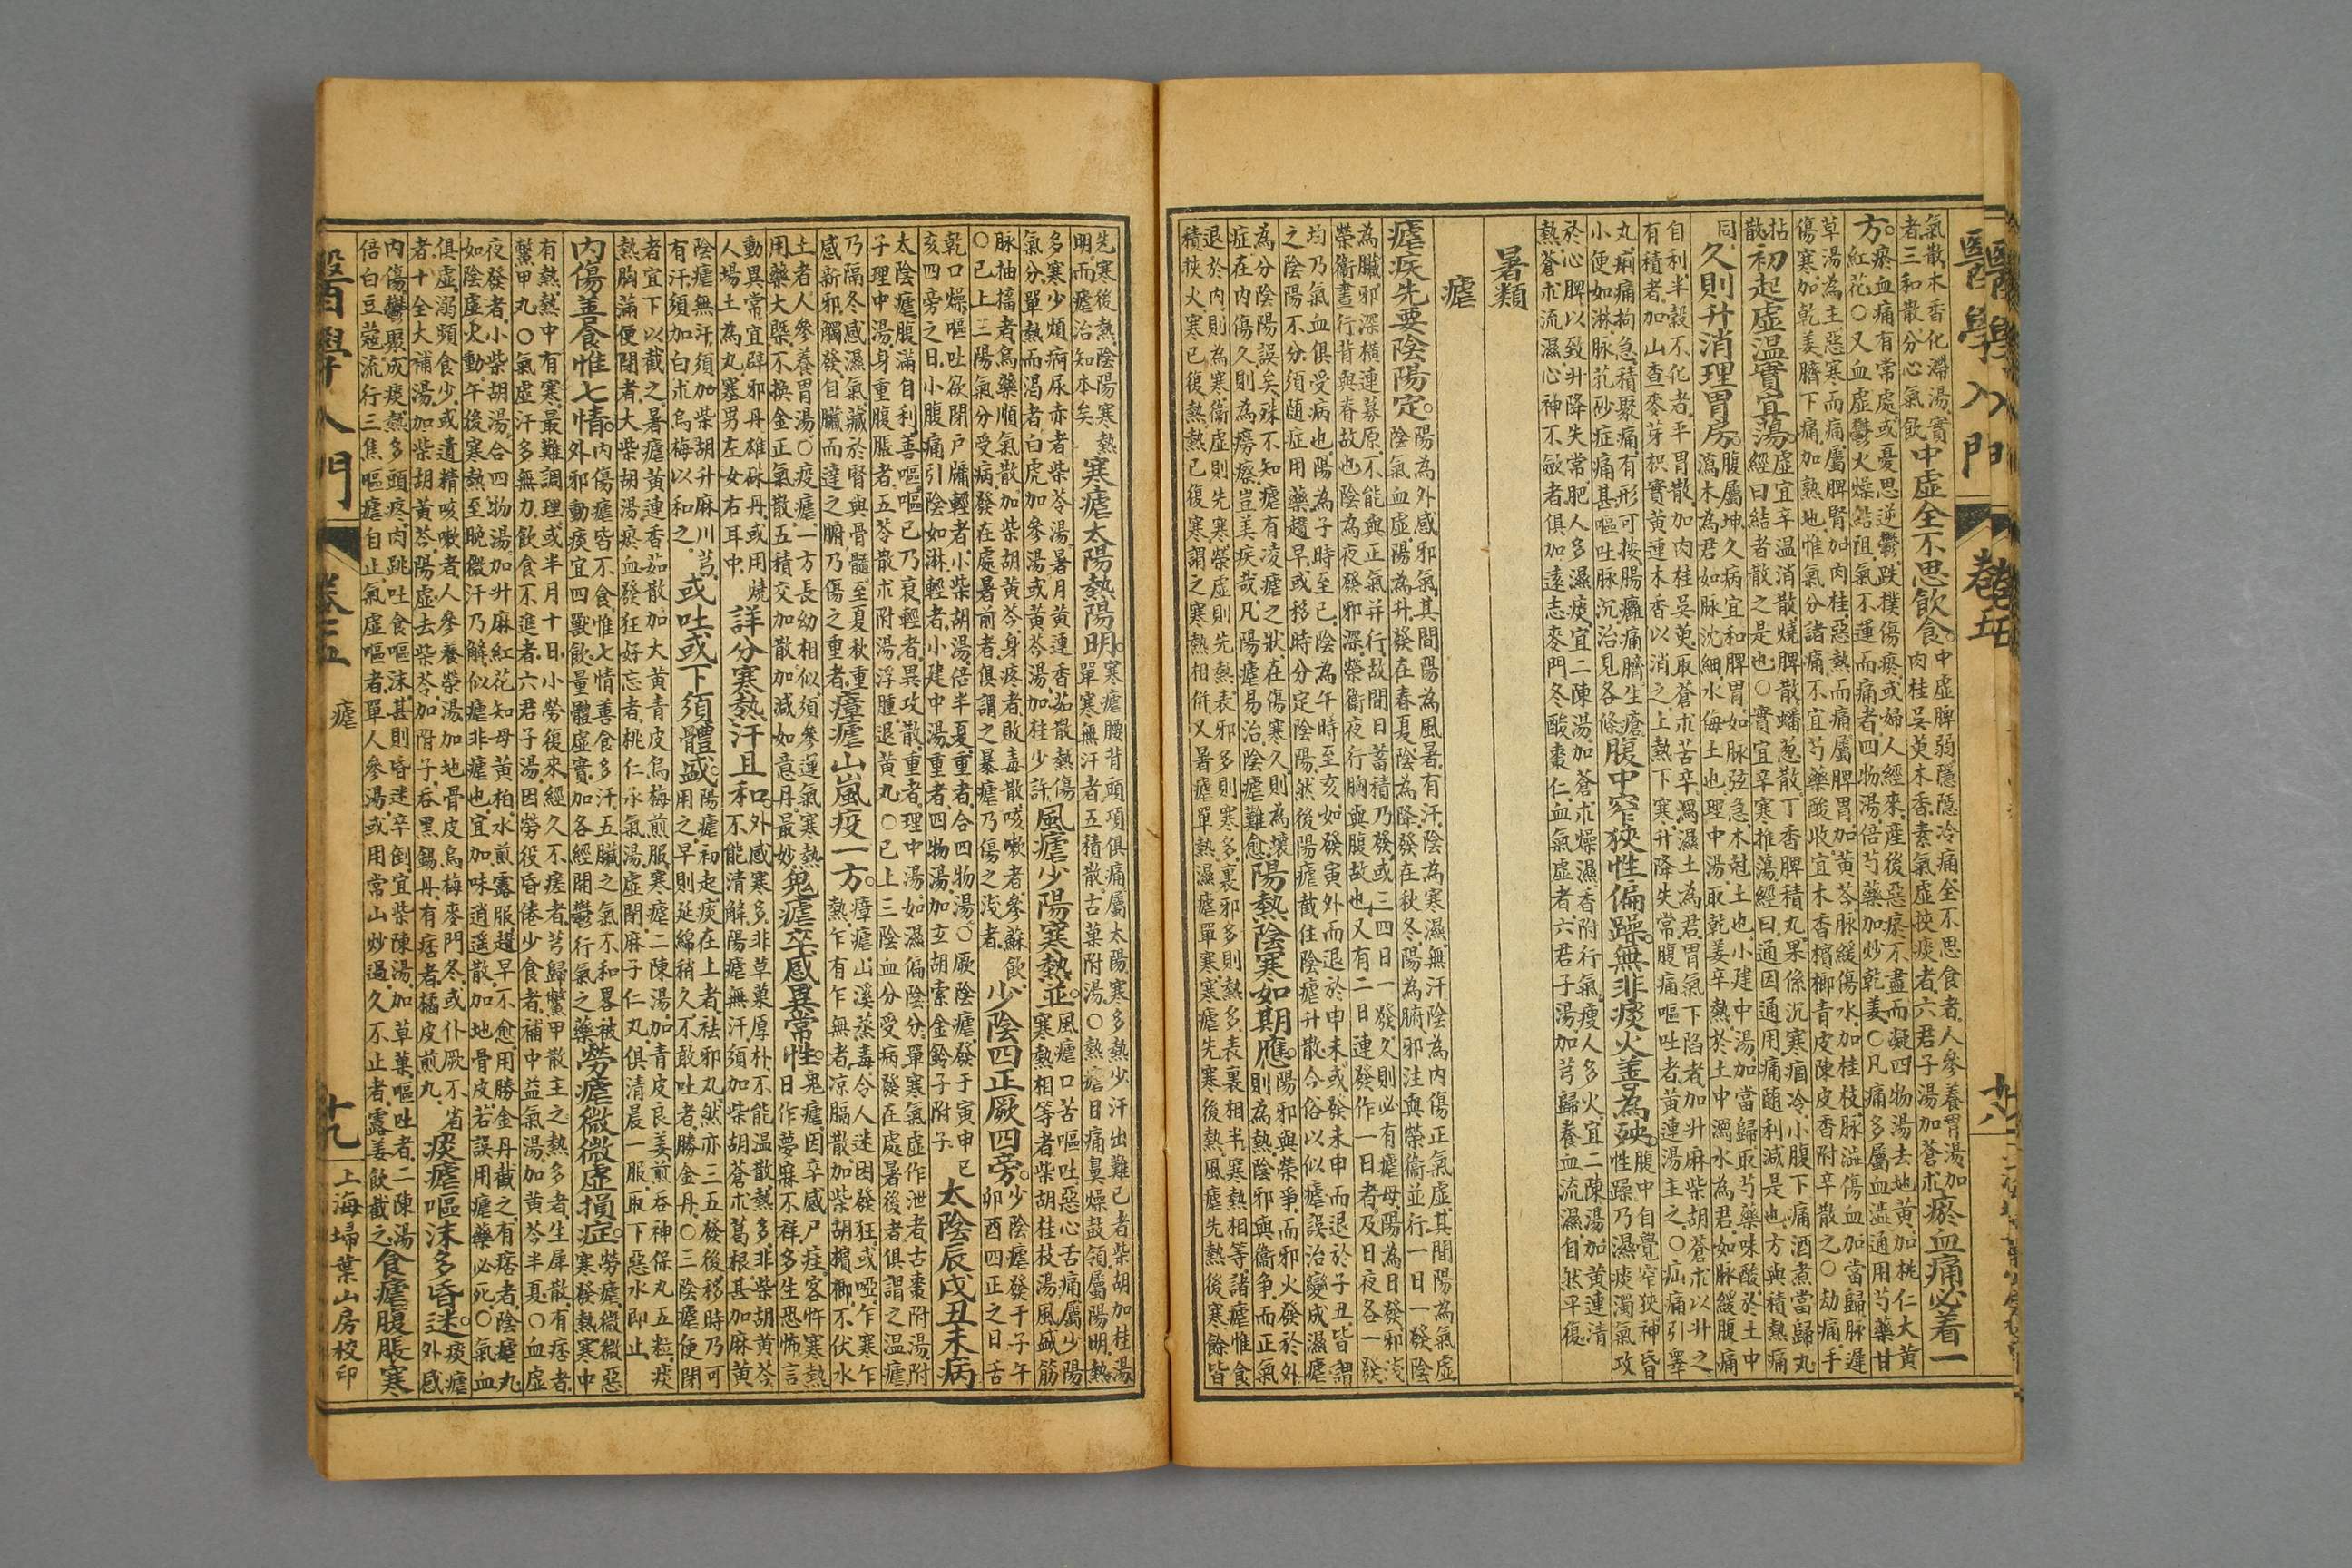 醫學入門 卷五
氣散木香化滯湯實
者三和散分心氣飲
中虛全不思飲食
中虛脾弱隱隱冷痛全不思食者人參養胃湯加
肉桂吳茱木香素氣虛挾痰者六君子湯加蒼朮
瘀血痛必着一
方
瘀血痛有常處或憂思逆鬱跌撲傷瘀或婦人經來產後惡瘀不盡而凝四物湯去地黃加桃仁大黃
紅花○又血虛鬱火燥結阻氣不運而痛者四物湯倍芍藥加炒乾姜○凡痛多屬血澁通用芍藥甘
草湯為主惡寒而痛屬脾腎加肉桂惡熱而痛屬脾胃加黃芩脈緩傷水加桂枝脈澁傷血加當歸脈遲
傷寒加乾姜臍下痛加熟地惟氣分諸痛不宜芍藥酸收宜木香檳榔青皮陳皮香附辛散之○劫痛手
拈
散
初起虛溫實宜蕩
虛宜辛溫消散燒脾散蟠葱散丁香脾積丸果係沉寒痼冷小腹下痛酒煮當歸丸
經曰結者散之是也○實宜辛寒推蕩經曰通因通用痛隨利減是也方與積熱痛
同
久則升消理胃房
腹屬坤久病宜和脾胃如脈弦急木尅土也小建中湯加當歸取芍藥味酸於土中
瀉木為君如脈沈細水侮土也理中湯取乾姜辛熱於土中瀉水為君如脈緩腹痛
自利半穀不化者平胃散加肉桂吳茱取蒼朮苦辛瀉濕土為君胃氣下陷者加升麻柴胡蒼朮以升之
有積者加山查麥芽枳實黃連木香以消之上熱下寒升降失常腹痛嘔吐者黃連湯主之○疝痛引睪
丸痢痛拘急積聚痛有形可按腸癰痛臍生瘡
小便如淋脈芤砂症痛甚嘔吐脈沉治見各條
腹中窄狹性偏躁無非痰火善為殃
腹中自覺窄狹神昏
性躁乃濕痰濁氣攻
於心脾以致升降失常肥人多濕痰宜二陳湯加蒼朮燥濕香附行氣瘦人多火宜二陳湯加黃連清
熱蒼朮流濕心神不斂者俱加遠志麥門冬酸棗仁血氣虛者六君子湯加芎歸養血流濕自然平復
暑類
瘧
瘧疾先要陰陽定
陽為外感邪氣其間陽為風暑有汗陰為寒濕無汗陰為內傷正氣虛其間陽為氣虛
陰氣血虛陽為升發在春夏陰為降發在秋冬陽為腑邪淺與榮衞並行一日一發陰
為臟邪深橫連募原不能與正氣并行故間日蓄積乃發或三四日一發久則必有瘧母陽為日發邪淺
榮衞晝行背與脊故也陰為夜發邪深榮衞夜行胸與腹故也又有二日連發住一日者及日夜各一發
均乃氣血俱受病也陽為子時至巳陰為午時至亥如發寅外而退於申未或發未申而退於子丑皆謂
之陰陽不分須隨症用藥趲早或移時分定陰陽然後陽瘧截住陰瘧升散今俗以似瘧誤治變成濕瘧
為分陰陽誤矣殊不知瘧有凌瘧之狀在傷寒久則為壞
症在內傷久則為癆瘵豈美疾哉凡陽瘧易治陰瘧難愈
陽熱陰寒如期應
陽邪與榮爭而邪火發於外
則為熱陰邪與衞爭而正氣
退於內則為寒衞虛則先寒榮虛則先熱表邪多則寒多裏邪多則熱多表裏相半寒熱相等諸瘧惟食
積挾火寒已復熱熱已復寒謂之寒熱相併又暑瘧單熱濕瘧單寒寒瘧先寒後熱風瘧先熱後寒餘皆
先寒後熱陰陽寒熱
明而瘧治知本矣
寒瘧太陽熱陽明
寒瘧腰背頭項俱痛屬太陽寒多熱少汗出難已者柴胡加桂湯
單寒無汗者五積散古菓附湯○熱瘧目痛鼻燥鼓頷屬陽明熱
多寒少煩痾尿赤者柴苓湯暑月黃連香茹散熱傷
氣分單熱而渴者白虎加參湯或黃芩湯加桂少許
風瘧少陽寒熱並
風瘧口苦嘔吐惡心舌痛屬少陽
寒熱相等者柴胡桂枝湯風盛筋
脈抽搐者烏藥順氣散加柴胡黃芩身疼者敗毒散咳嗽者參蘇飲
○已上三陽氣分受病發在處暑前者俱謂之暴瘧乃傷之淺者
少陰四正厥四旁
少陰瘧發于子午
卯酉四正之日舌
乾口燥嘔吐欲閉戶牖輕者小柴胡湯倍半夏重者合四物湯○厥陰瘧發于寅申巳
亥四旁之日小腹痛引陰如淋輕者小建中湯重者四物湯加玄胡索金鈴子附子
太陰辰戌丑未病
太陰瘧腹滿自利善嘔嘔已乃衰輕者異攻散重者理中湯如濕偏陰分單寒氣虛作泄者古棗附湯附
子理中湯身重腹脹者五苓散朮附湯浮腫退黃丸○已上三陰血分受病發在處暑後者俱謂之温瘧
乃隔冬感濕氣藏於腎與骨髓至夏秋重
感新邪觸發自臟而達之腑乃傷之重者
瘴瘧山嵐疫一方
瘴瘧山溪蒸毒令人迷困發狂或啞乍寒乍
熱乍有乍無者凉膈散加柴胡檳榔不伏水
土者人參養胃湯○疫瘧一方長幼相似須參運氣寒熱
用藥大槩不換金正氣散五積交加散加減如意丹最妙
鬼瘧卒感異常性
鬼瘧因卒感尸疰客忤寒熱
日作夢寐不祥多生恐怖言
動異常宜辟邪丹雄硃丹或用燒
人場土為丸塞男左女右耳中
詳分寒熱汗且和
外感寒多非草菓厚朴不能温散熱多非柴胡黃芩
不能清解陽瘧無汗須加柴胡蒼朮葛根甚加麻黃
陰瘧無汗須加柴胡升麻川芎
有汗須加白朮烏梅以和之
或吐或下須體盛
陽瘧初起痰在上者祛邪丸然亦三五發後移時乃可
用之早則延綿稍久不敢吐者勝金丹○三陰瘧便閉
者宜下以截之暑瘧黃連香茹散加大黃青皮烏梅煎服寒瘧二陳湯加青皮良姜煎吞神保丸五粒痰
熱胸滿便閉者大柴胡湯瘀血發狂好忘者桃仁承氣湯虛閉麻子仁丸俱清晨一服取下惡水即止
內傷善食惟七情
內傷瘧皆不食惟七情善食多汗五臟之氣不和畧被
外邪動痰宜四獸飲量體虛實加各經開鬱行氣之藥
勞瘧微微虛損症
勞瘧微微惡
寒發熱寒中
有熱熱中有寒最難調理或半月十日小勞復來經久不瘥者芎歸鱉甲散主之熱多者生犀散有痞者
鱉甲丸○氣虛汗多無力飲食不進者六君子湯因勞役昏倦少食者補中益氣湯加黃芩半夏○血虛
夜發者小柴胡湯合四物湯加升麻紅花知母黃柏水煎露服趲早不愈用勝金丹截之有痞者陰瘧丸
如陰虛火動午後寒熱至晚微汗乃解似瘧非瘧也宜加味逍遥散加地骨皮若誤用瘧藥必死○氣血
俱虛溺頻食少或遺精咳嗽者人參養榮湯加地骨皮烏梅麥門冬或仆厥不省
者十全大補湯加柴胡黃芩陽虛去柴芩加附子吞黑錫丹有痞者橘皮煎丸
痰瘧嘔沫多昏迷
痰瘧
外感
內傷鬱聚成痰熱多頭疼肉跳吐食嘔沫甚則昏迷卒倒宜柴陳湯加草菓嘔吐者二陳湯
倍白豆蔻流行三焦嘔瘧自止氣虛嘔者單人參湯或用常山炒過久不止者露姜飲截之
食瘧腹脹寒
醫學入門 卷五 瘧 十九 上海埽葉山房校印